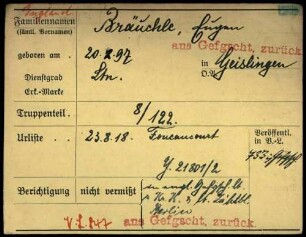 England
Familiennamen
(sämtl. Vornamen)
Bräuchle, Eugen
aus Gefgscht. zurück
geboren am 20.2.97 in Geislingen
O.A.
Dienstgrad Ltn.
Erk.-Marke
Truppenteil. 8/122.
Urliste 23.8.18. Foucaucourt
Veröffentl.
in V.-L.
Y. 21801/2
Berichtigung nicht vermißt
Berlin
aus Gefgscht. zurück.